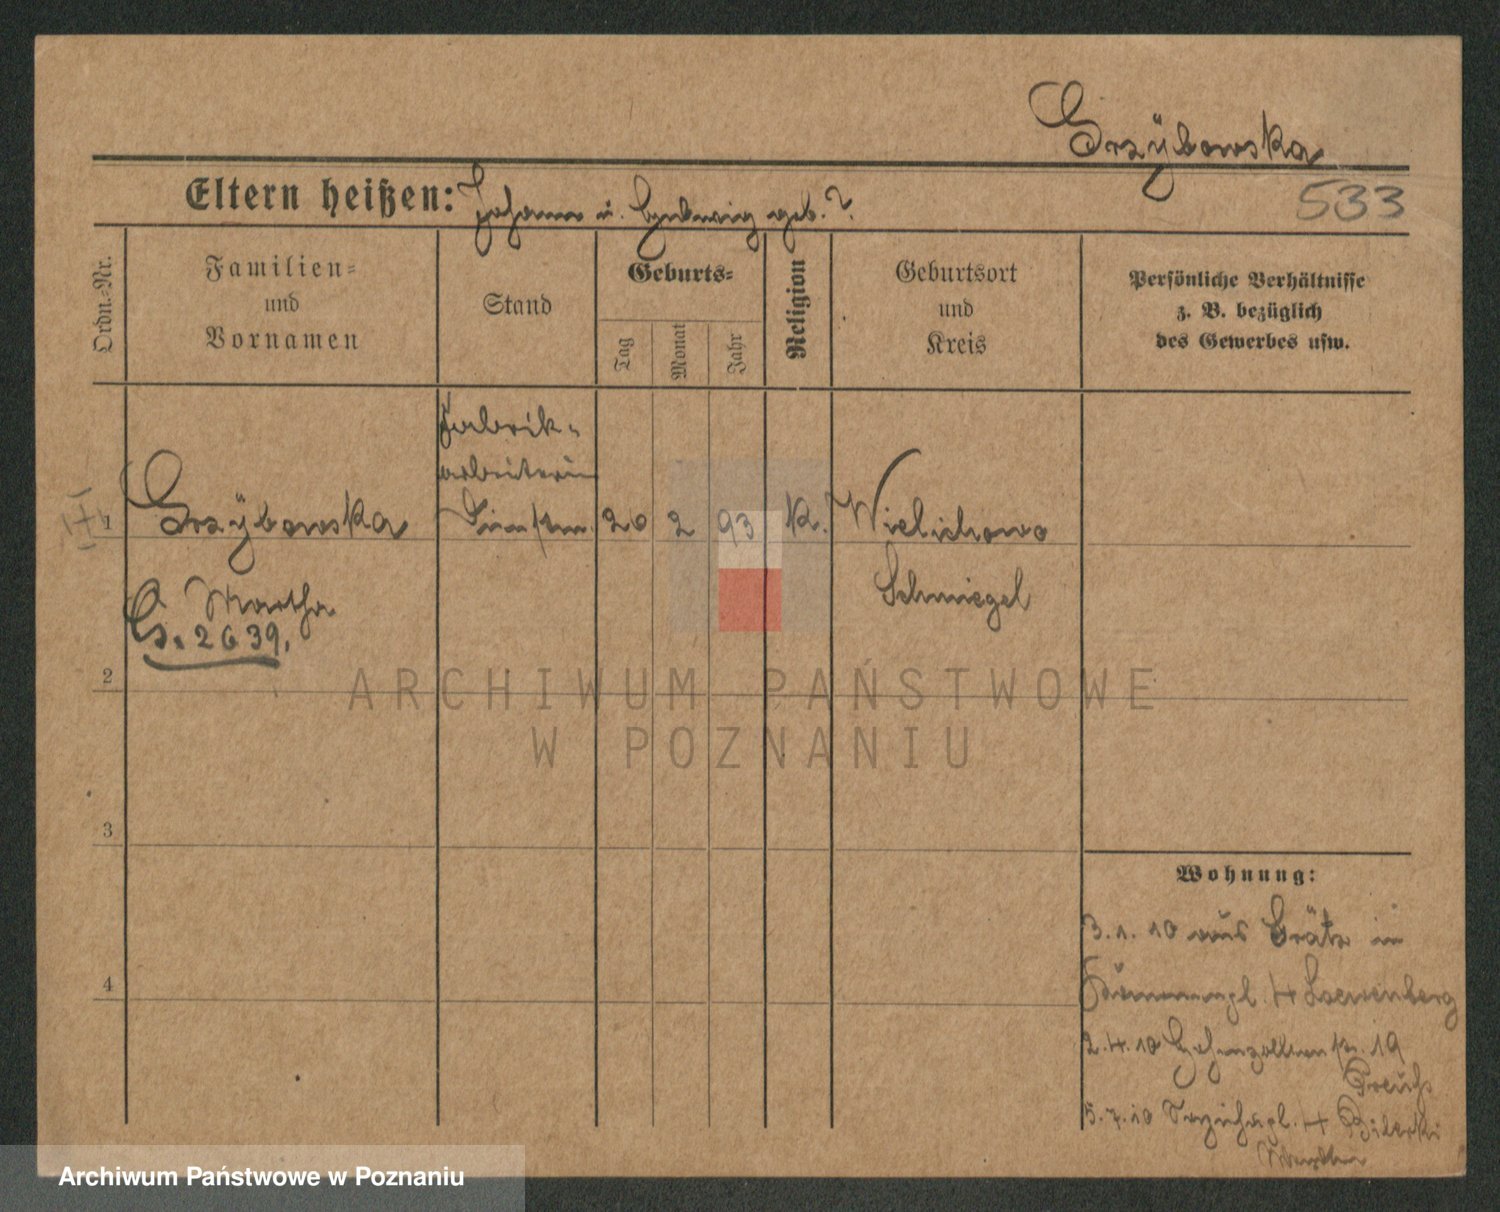 Grzÿbowska
Eltern heißen: Johann u. Hedwig geb. ?
533
Ordn.-Nr.
Familien-
und
Vornamen
Stand
Geburts-
Tag
Monat
Jahr
Religion
Geburtsort
und
Kreis
Persönliche Verhältnisse
z. B. bezüglich
des Gewerbes usw.
Fabrik-
arbeiterin
1 Grzÿbowska 20 2 93 K. Wielichowo
Martha Schmiegel
G. 2639.
2
ARCHIWUM PAŃSTWOWE
W POZNANIU
3
Wohnung:
3.1.10 aus Grätz in
4 Loewenberg
4
2.4.10 Hohenzollern 19
5.7.10 4
Archiwum Państwowe w Poznaniu